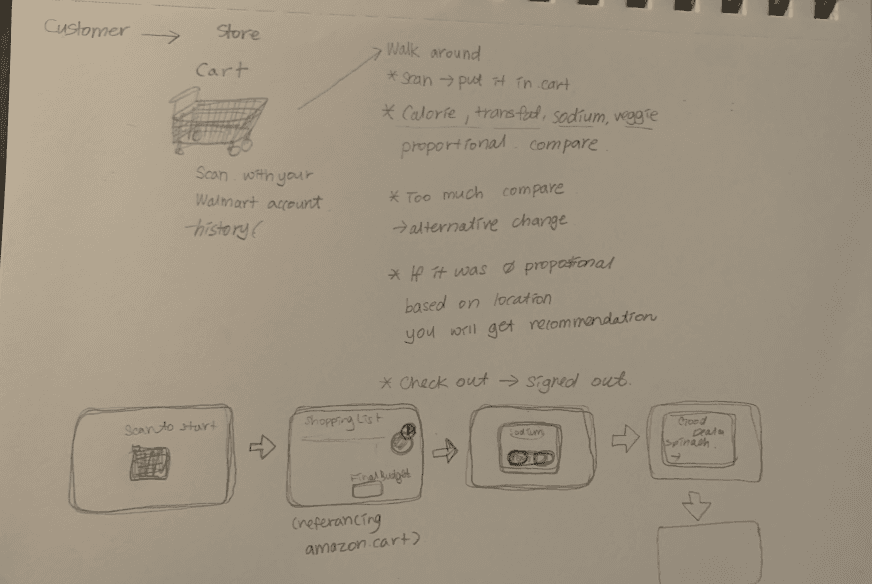 Customer → Store
Cart
Scan with your
Walmart account
history
Walk around
* Scan → put it in cart
* Calorie, transfat, sodium, veggie
proportional compare
* Too much compare
→ alternative change
* If it was ∅ propotional
based on location
you will get recommendation
* Check out → signed out.
Scan to start
Shopping List
Final Budget
(referancing
amazon cart)
Sodium
Good
Deal
spinach
→